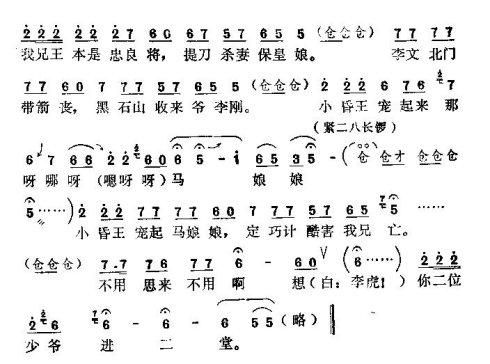 2̇2̇2̇ 2̇2̇ 2̇7 67 77 67 65 5 (仓仓仓) 77 77
我兄王 本是忠良将，提刀 杀妻保皇娘。 李文 北门
77 60 77 77 57 65 5 (仓仓仓) 2̇ 2̇2̇ 6 76 7
带箭 丧，黑 石山 收来 爷 李刚。 小 昏王 宠 起来 那
(紧二八长锣)
6 7 66 2̇2̇ 60 6 5 - i 65 35 - (仓 仓才 仓仓仓
呀 哪 呀 (嗯呀 呀) 马 娘 娘
5 ……) 2̇ 2̇2̇ 77 77 60 7 77 57 65 5 ……
小 昏王 宠起 马娘 娘，定 巧计 酷害 我兄 亡。
(仓仓仓) 7·7 76 77 6 - 60 (6 ……) 2̇2̇2̇
不用 恩来 不用 啊 想 (白：李虎！) 你二位
2̇26 6 - 6 - 6 55 (略)
少爷 进 二 堂。